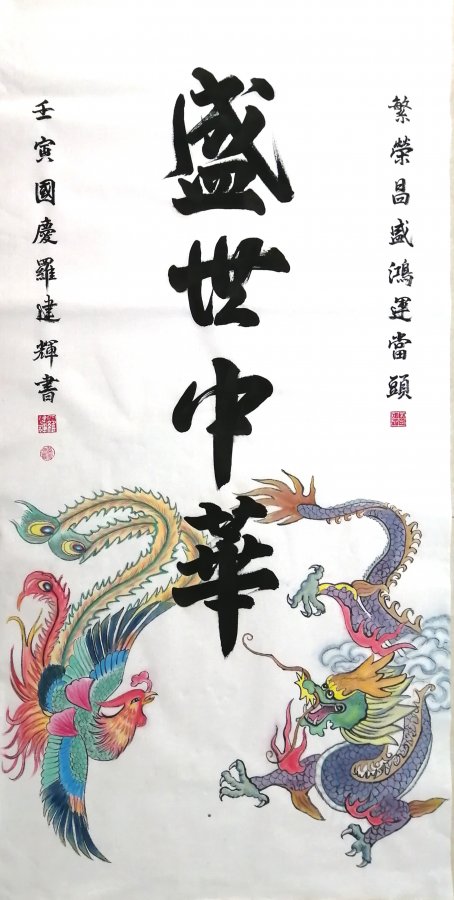 繁榮昌盛鴻運當頭
盛世中華
壬寅國慶羅建輝書